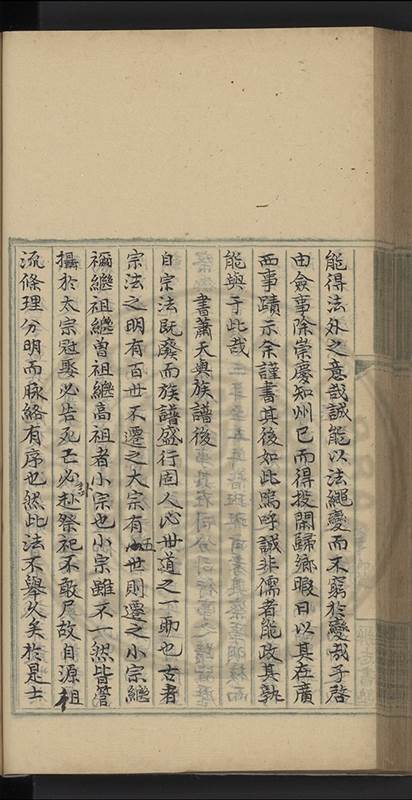 能得法外之意哉誠能以法繩變而不窮於變哉子啓
由僉事除崇慶知州已而得投閒歸鄉暇日以其在廣
西事蹟示余謹書其後如此嗚呼誠非儒者能政其孰
能與于此哉
書蕭天與族譜後
自宗法既廢而族譜盛行固人心世道之一助也古者
宗法之明有百世不遷之大宗有五世則遷之小宗繼
禰繼祖繼曾祖繼高祖者小宗也小宗雖不一然皆管
攝於大宗冠娶必告死亡必赴祭祀不敢尸故自源徂
流條理分明而脉絡有序也然此法不舉久矣於是士